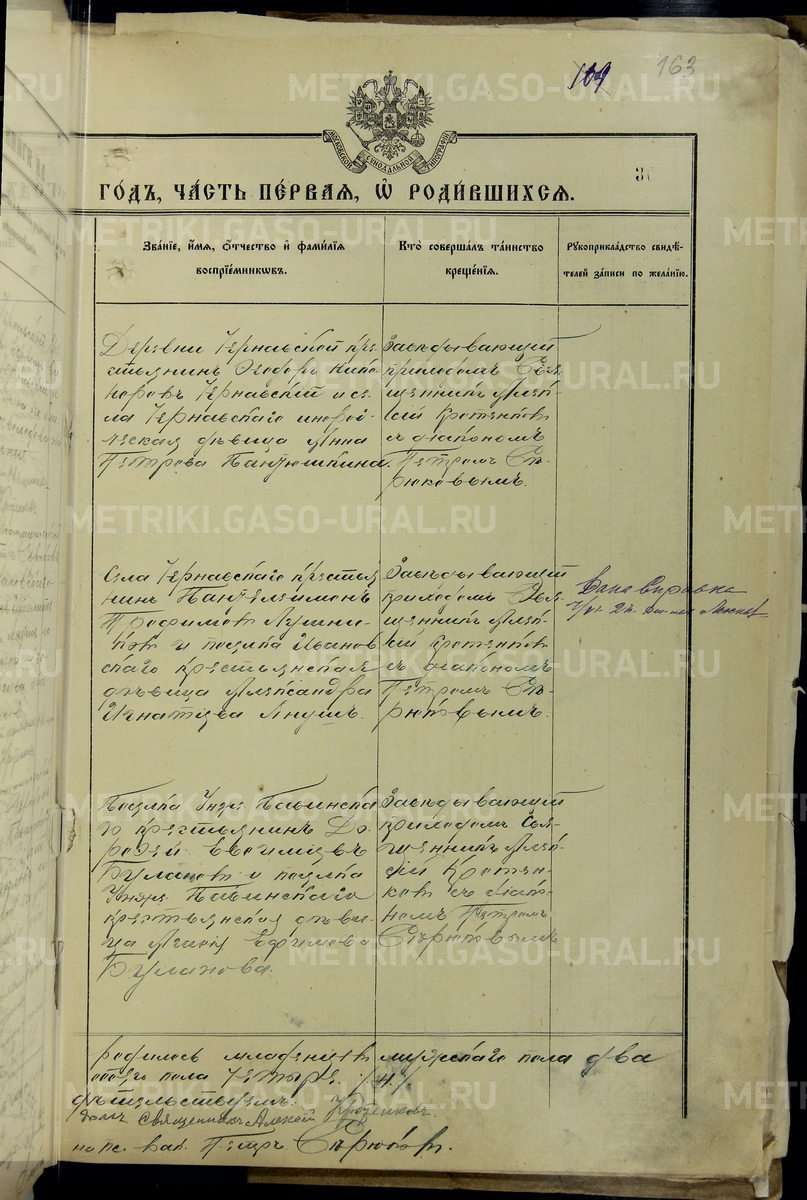 109 163
МОСКОВСКОЙ СѴНОДАЛЬНОЙ ТИПОГРАФІИ
ГО́ДЪ, ЧА́СТЬ ПЕ́РВАЯ, Ѽ РОДИ́ВШИХСЯ.
Зва́нїе, и҆́мя, ѻ҆́тчество и҆ фами́лїя воспрїе́мникѡвъ.
Кто̀ соверша́лъ та́инство креще́нїя.
Рꙋкоприкла́дство свидѣ́телей за́писи по жела́нїю.
Деревни Чернавской кре-
стьянинъ Ѳеодоръ Ники-
форовъ Чернавскій и се-
ла Чернавскаго
дѣвица Анна
Петрова Пантюшкина.
Завѣдывающій
приходомъ Свя-
щенникъ Алек-
сій Кротенковъ
съ діакономъ
Петромъ Сѣ-
рюковымъ.
Села Чернавскаго крестья
нинъ Пантелеимонъ
Трофимовъ
и поселка Иванов
скаго крестьянская
дѣвица Александра
Игнатіева
Завѣдывающій
приходомъ Свя-
щенникъ Алек-
сій Кротенковъ
съ діакономъ
Петромъ Сѣ-
рюковымъ.
Дана справка
Поселка Павинска
го крестьянинъ До-
роѳей
Булановъ и поселка
Павинскаго
крестьянская дѣви-
ца Ефимова
Буланова.
Завѣдывающій
приходомъ Свя-
щенникъ Алек-
сій Кротен-
ковъ съ діако-
номъ Петромъ
Сѣрюковымъ
родилось младенцевъ мужскаго пола два
обоего пола четыре /4/
свидѣтельствуемъ.
Священникъ Алексій Кротенков
на пс. вак. Петръ Сѣрюковъ.
METRIKI.GASO-URAL.RU